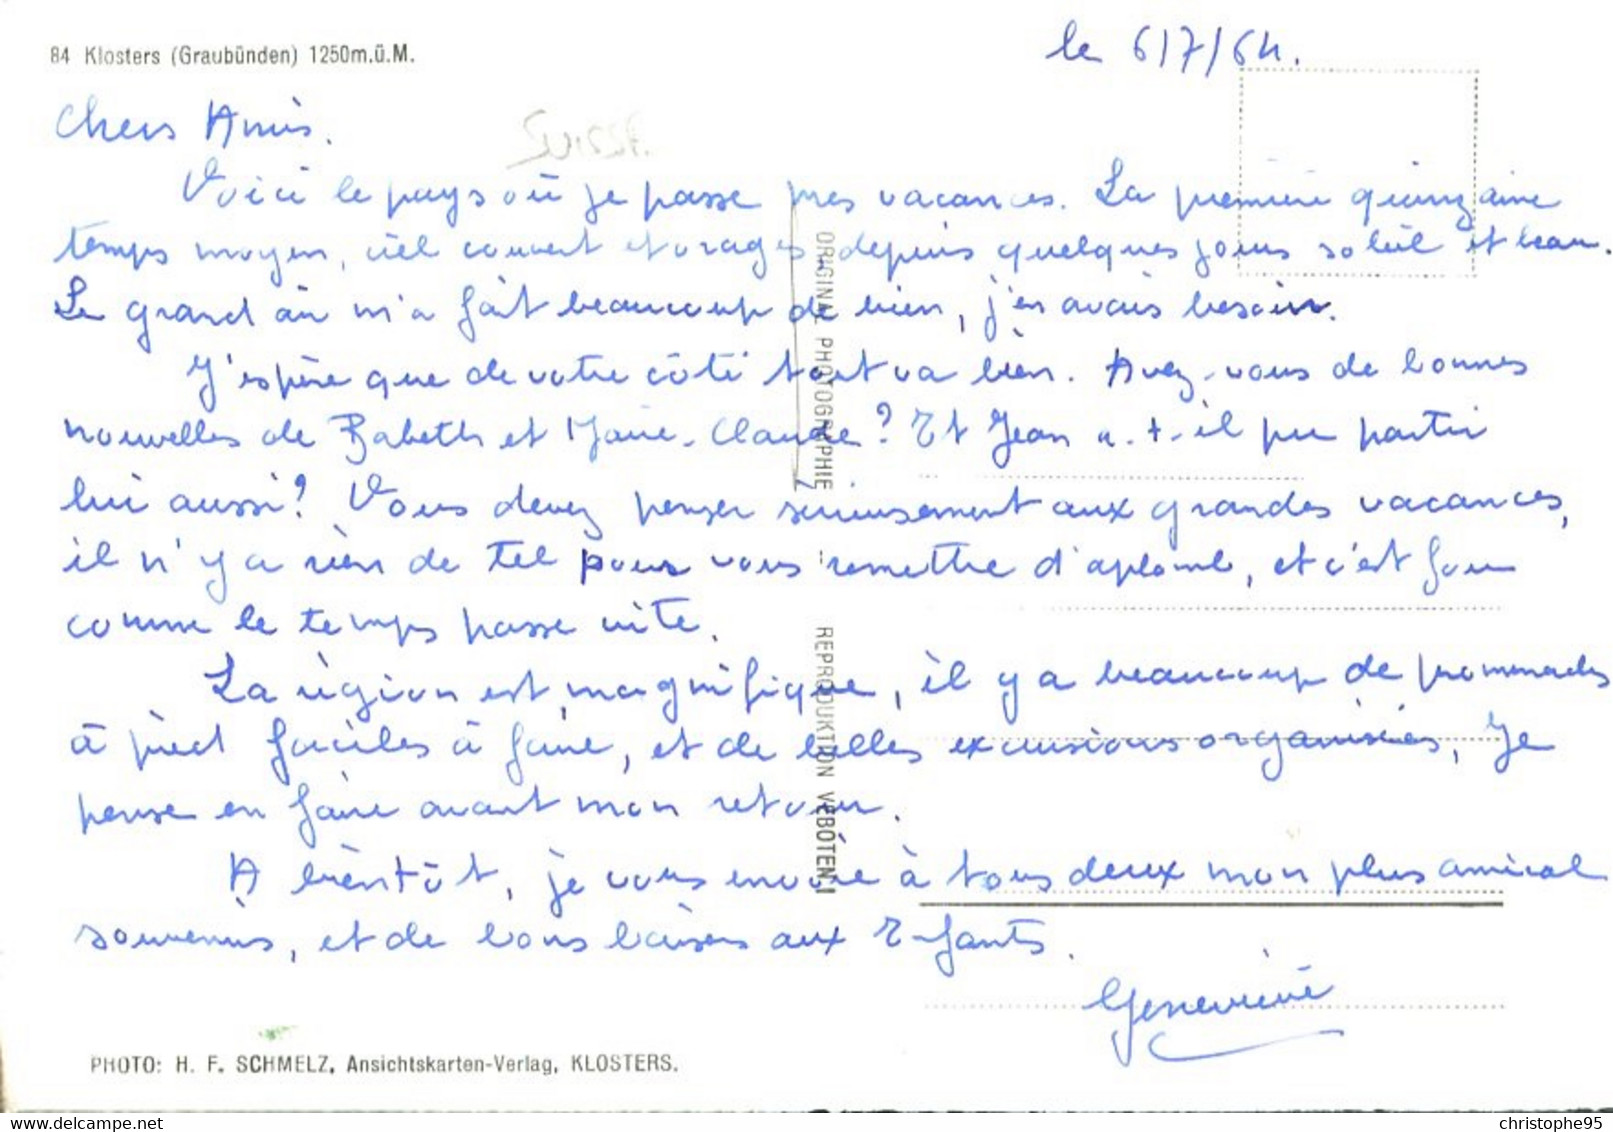 84 Klosters (Graubünden) 1250m.ü.M.
le 6/7/64.
Chers Amis.
SUISSE
Voici le pays où je passe mes vacances. La première quinzaine
temps moyen, ciel couvert et orages, depuis quelques jours soleil et beau.
Le grand air m'a fait beaucoup de bien, j'en avais besoin.
J'espère que de votre côté tout va bien. Avez-vous de bonnes
nouvelles de Babeth et Marie-Claude? Et Jean a-t-il pu partir
lui aussi? Vous devez penser sérieusement aux grandes vacances,
il n'y a rien de tel pour vous remettre d'aplomb, et c'est fou
comme le temps passe vite.
La région est magnifique, il y a beaucoup de promenades
à pied faciles à faire, et de belles excursions organisées, Je
pense en faire avant mon retour.
A bientôt, je vous envoie à tous deux mon plus amical
souvenirs, et de bons baisers aux Enfants.
Geneviève
ORIGINAL PHOTOGRAPHIE - REPRODUKTION VEBOTEN!
PHOTO: H. F. SCHMELZ, Ansichtskarten-Verlag, KLOSTERS.
www.delcampe.net
christophe95